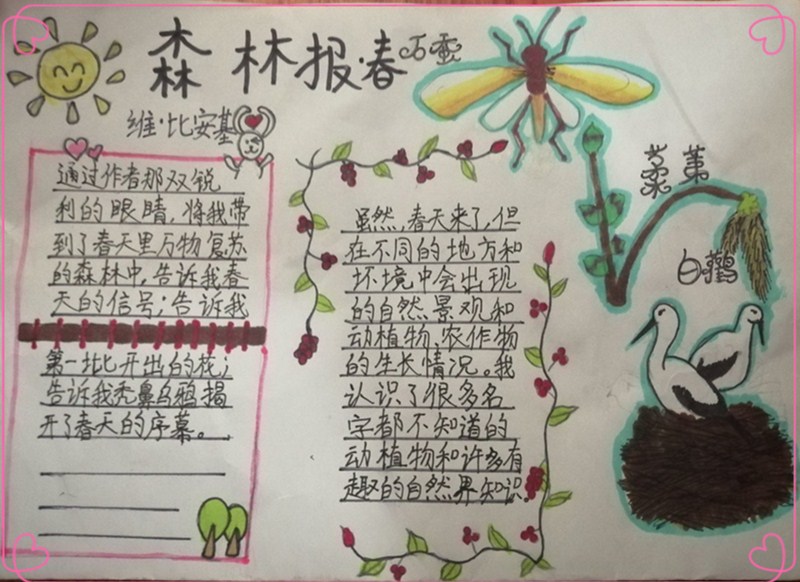 森林报·春
维·比安基
通过作者那双锐
利的眼睛，将我带
到了春天里万物复苏
的森林中，告诉我春
天的信号；告诉我
第一批开出的花；
告诉我秃鼻乌鸦揭
开了春天的序幕。
虽然，春天来了，但
在不同的地方和
环境中会出现
的自然景观和
动植物、农作物
的生长情况。我
认识了很多名
字都不知道的
动植物和许多有
趣的自然界知识。
石蚕
葇荑
白鹳